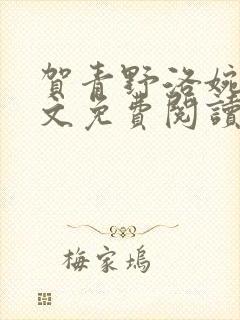 賀青野洛婉
文免費閱讀
梅家塢